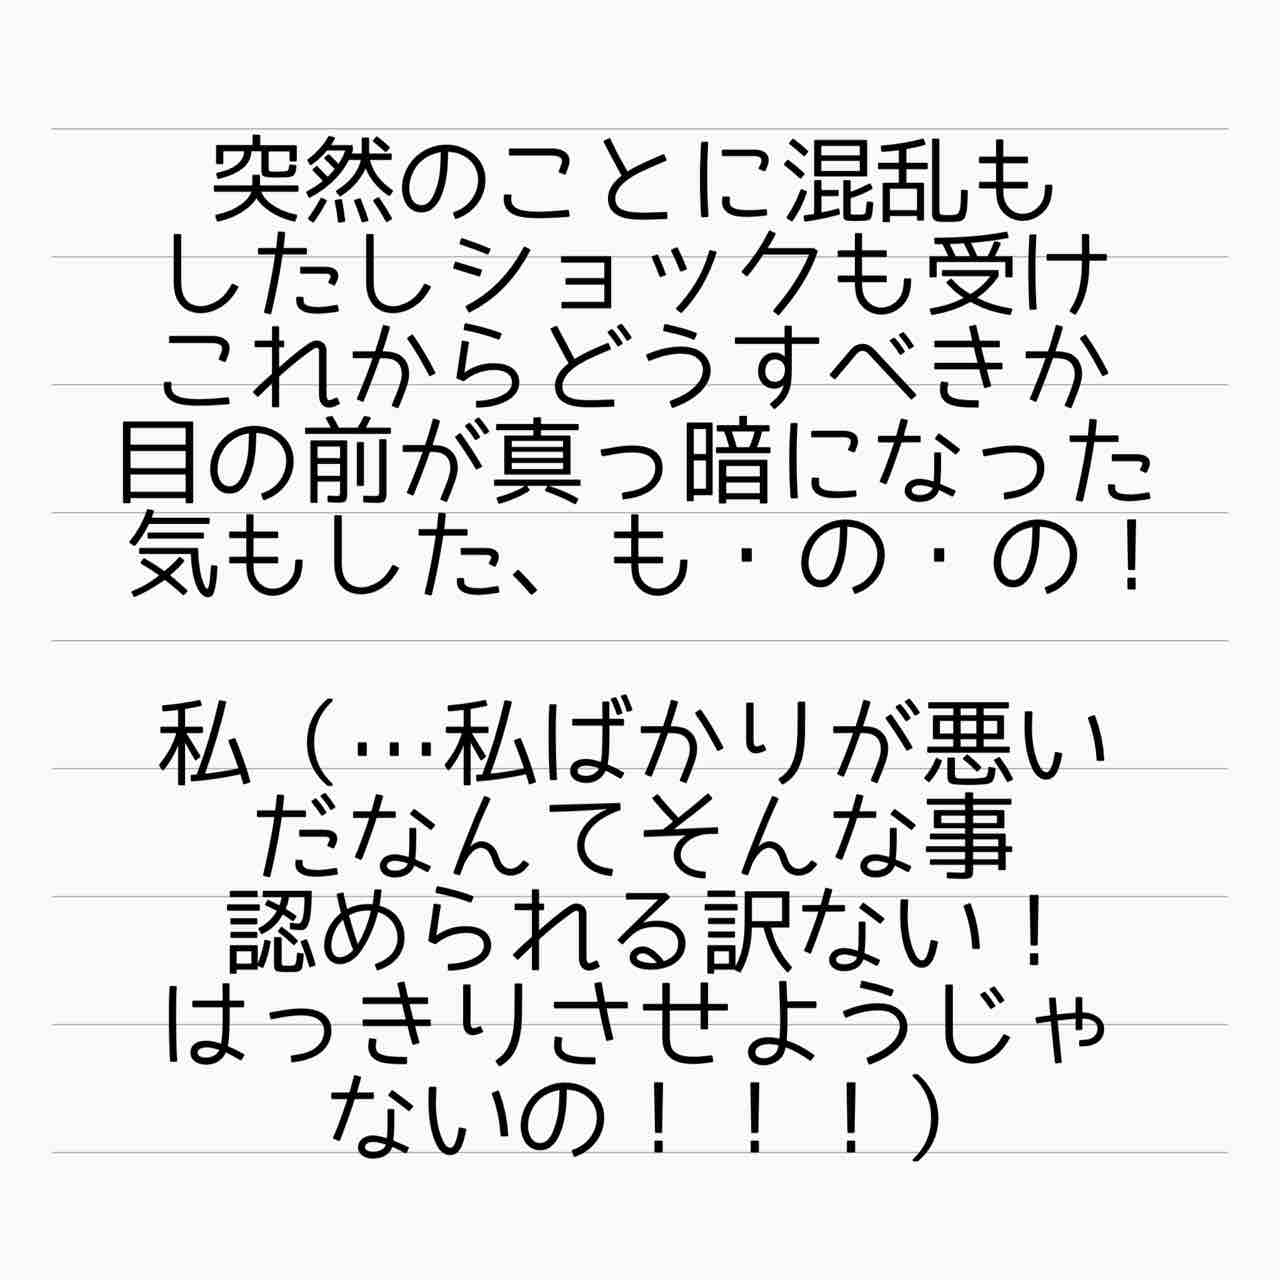 突然のことに混乱も
したしショックも受け
これからどうすべきか
目の前が真っ暗になった
気もした、も・の・の！
私（…私ばかりが悪い
だなんてそんな事
認められる訳ない！
はっきりさせようじゃ
ないの！！！）